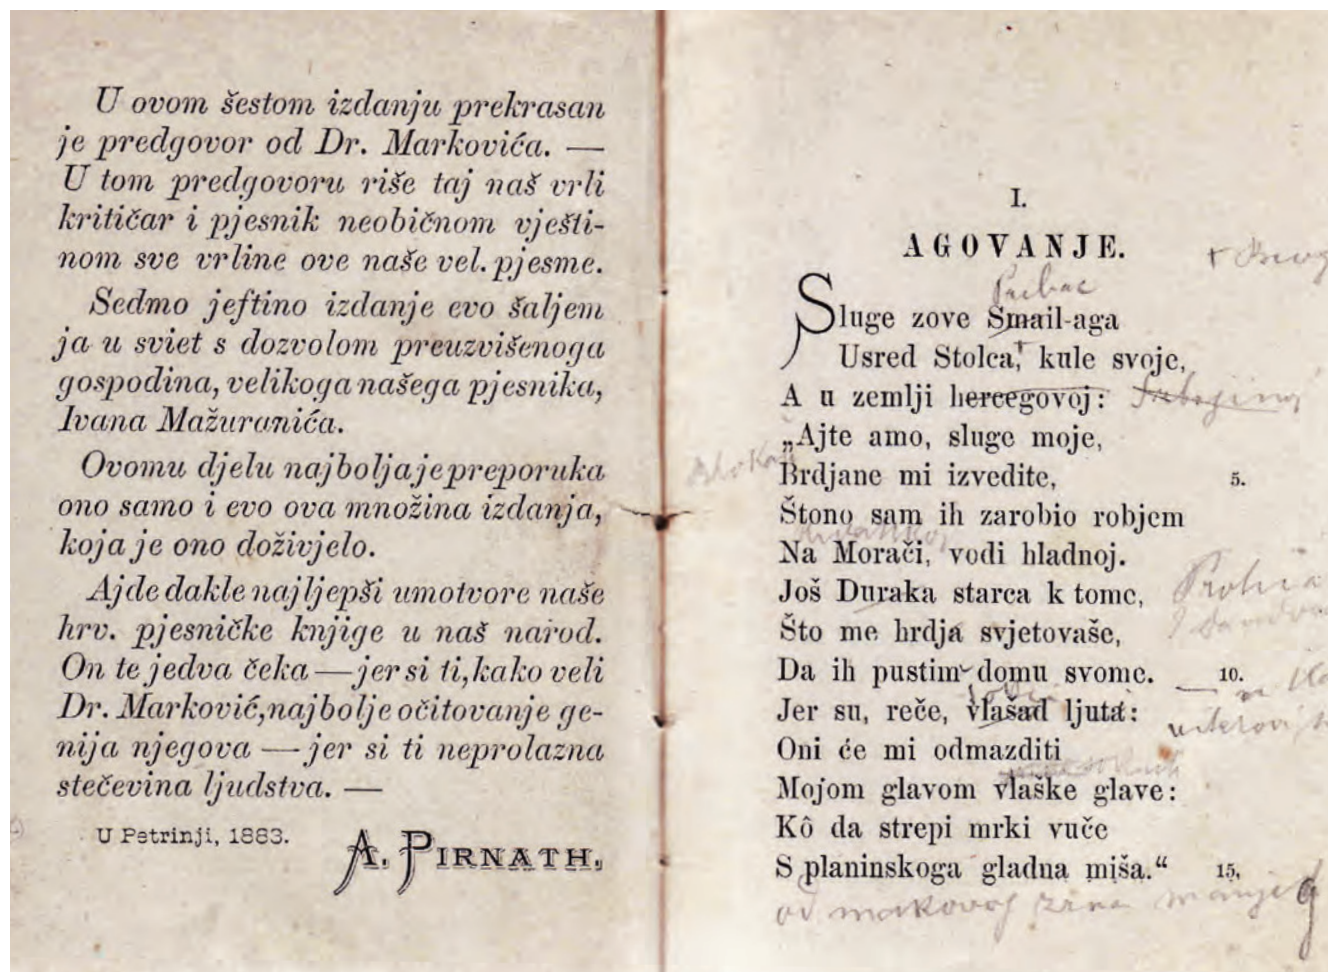 U ovom šestom izdanju prekrasan
je predgovor od Dr. Markovića. —
U tom predgovoru riše taj naš vrli
kritičar i pjesnik neobičnom vješti-
nom sve vrline ove naše vel. pjesme.
Sedmo jeftino izdanje evo šaljem
ja u sviet s dozvolom preuzvišenoga
gospodina, velikoga našega pjesnika,
Ivana Mažuranića.
Ovomu djelu najbolja je preporuka
ono samo i evo ova množina izdanja,
koja je ono doživjelo.
Ajde dakle najljepši umotvore naše
hrv. pjesničke knjige u naš narod.
On te jedva čeka — jer si ti, kako veli
Dr. Marković, najbolje očitovanje ge-
nija njegova — jer si ti neprolazna
stečevina ljudstva. —
U Petrinji, 1883.
A. PIRNATH.
I.
AGOVANJE.
Sluge zove Smail-aga
Usred Stolca, kule svoje,
A u zemlji hercegovoj:
„Ajte amo, sluge moje,
Brdjane mi izvedite, 5.
Štono sam ih zarobio robjem
Na Morači, vodi hladnoj.
Još Duraka starca k tome,
Što me hrdja svjetovaše,
Da ih pustim domu svome. 10.
Jer su, reče, vlašad ljuta:
Oni će mi odmazditi
Mojom glavom vlaške glave:
Kô da strepi mrki vuče
S planinskoga gladna miša.“ 15.
od makovog zrna manje